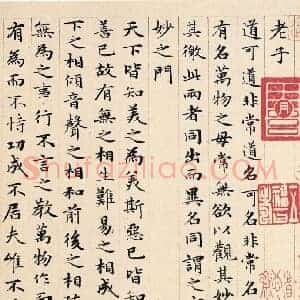 老子
道可道非常道名可名非常名
有名萬物之母常無欲以觀其妙
其徼此兩者同出而異名同謂之
妙之門
天下皆知美之為美斯惡已皆知
善已故有無之相生難易之相成
下之相傾音聲之相和前後之相
無為之事行不言之教萬物作而
有為而不恃功成不居夫唯不
Shufaziliao.com